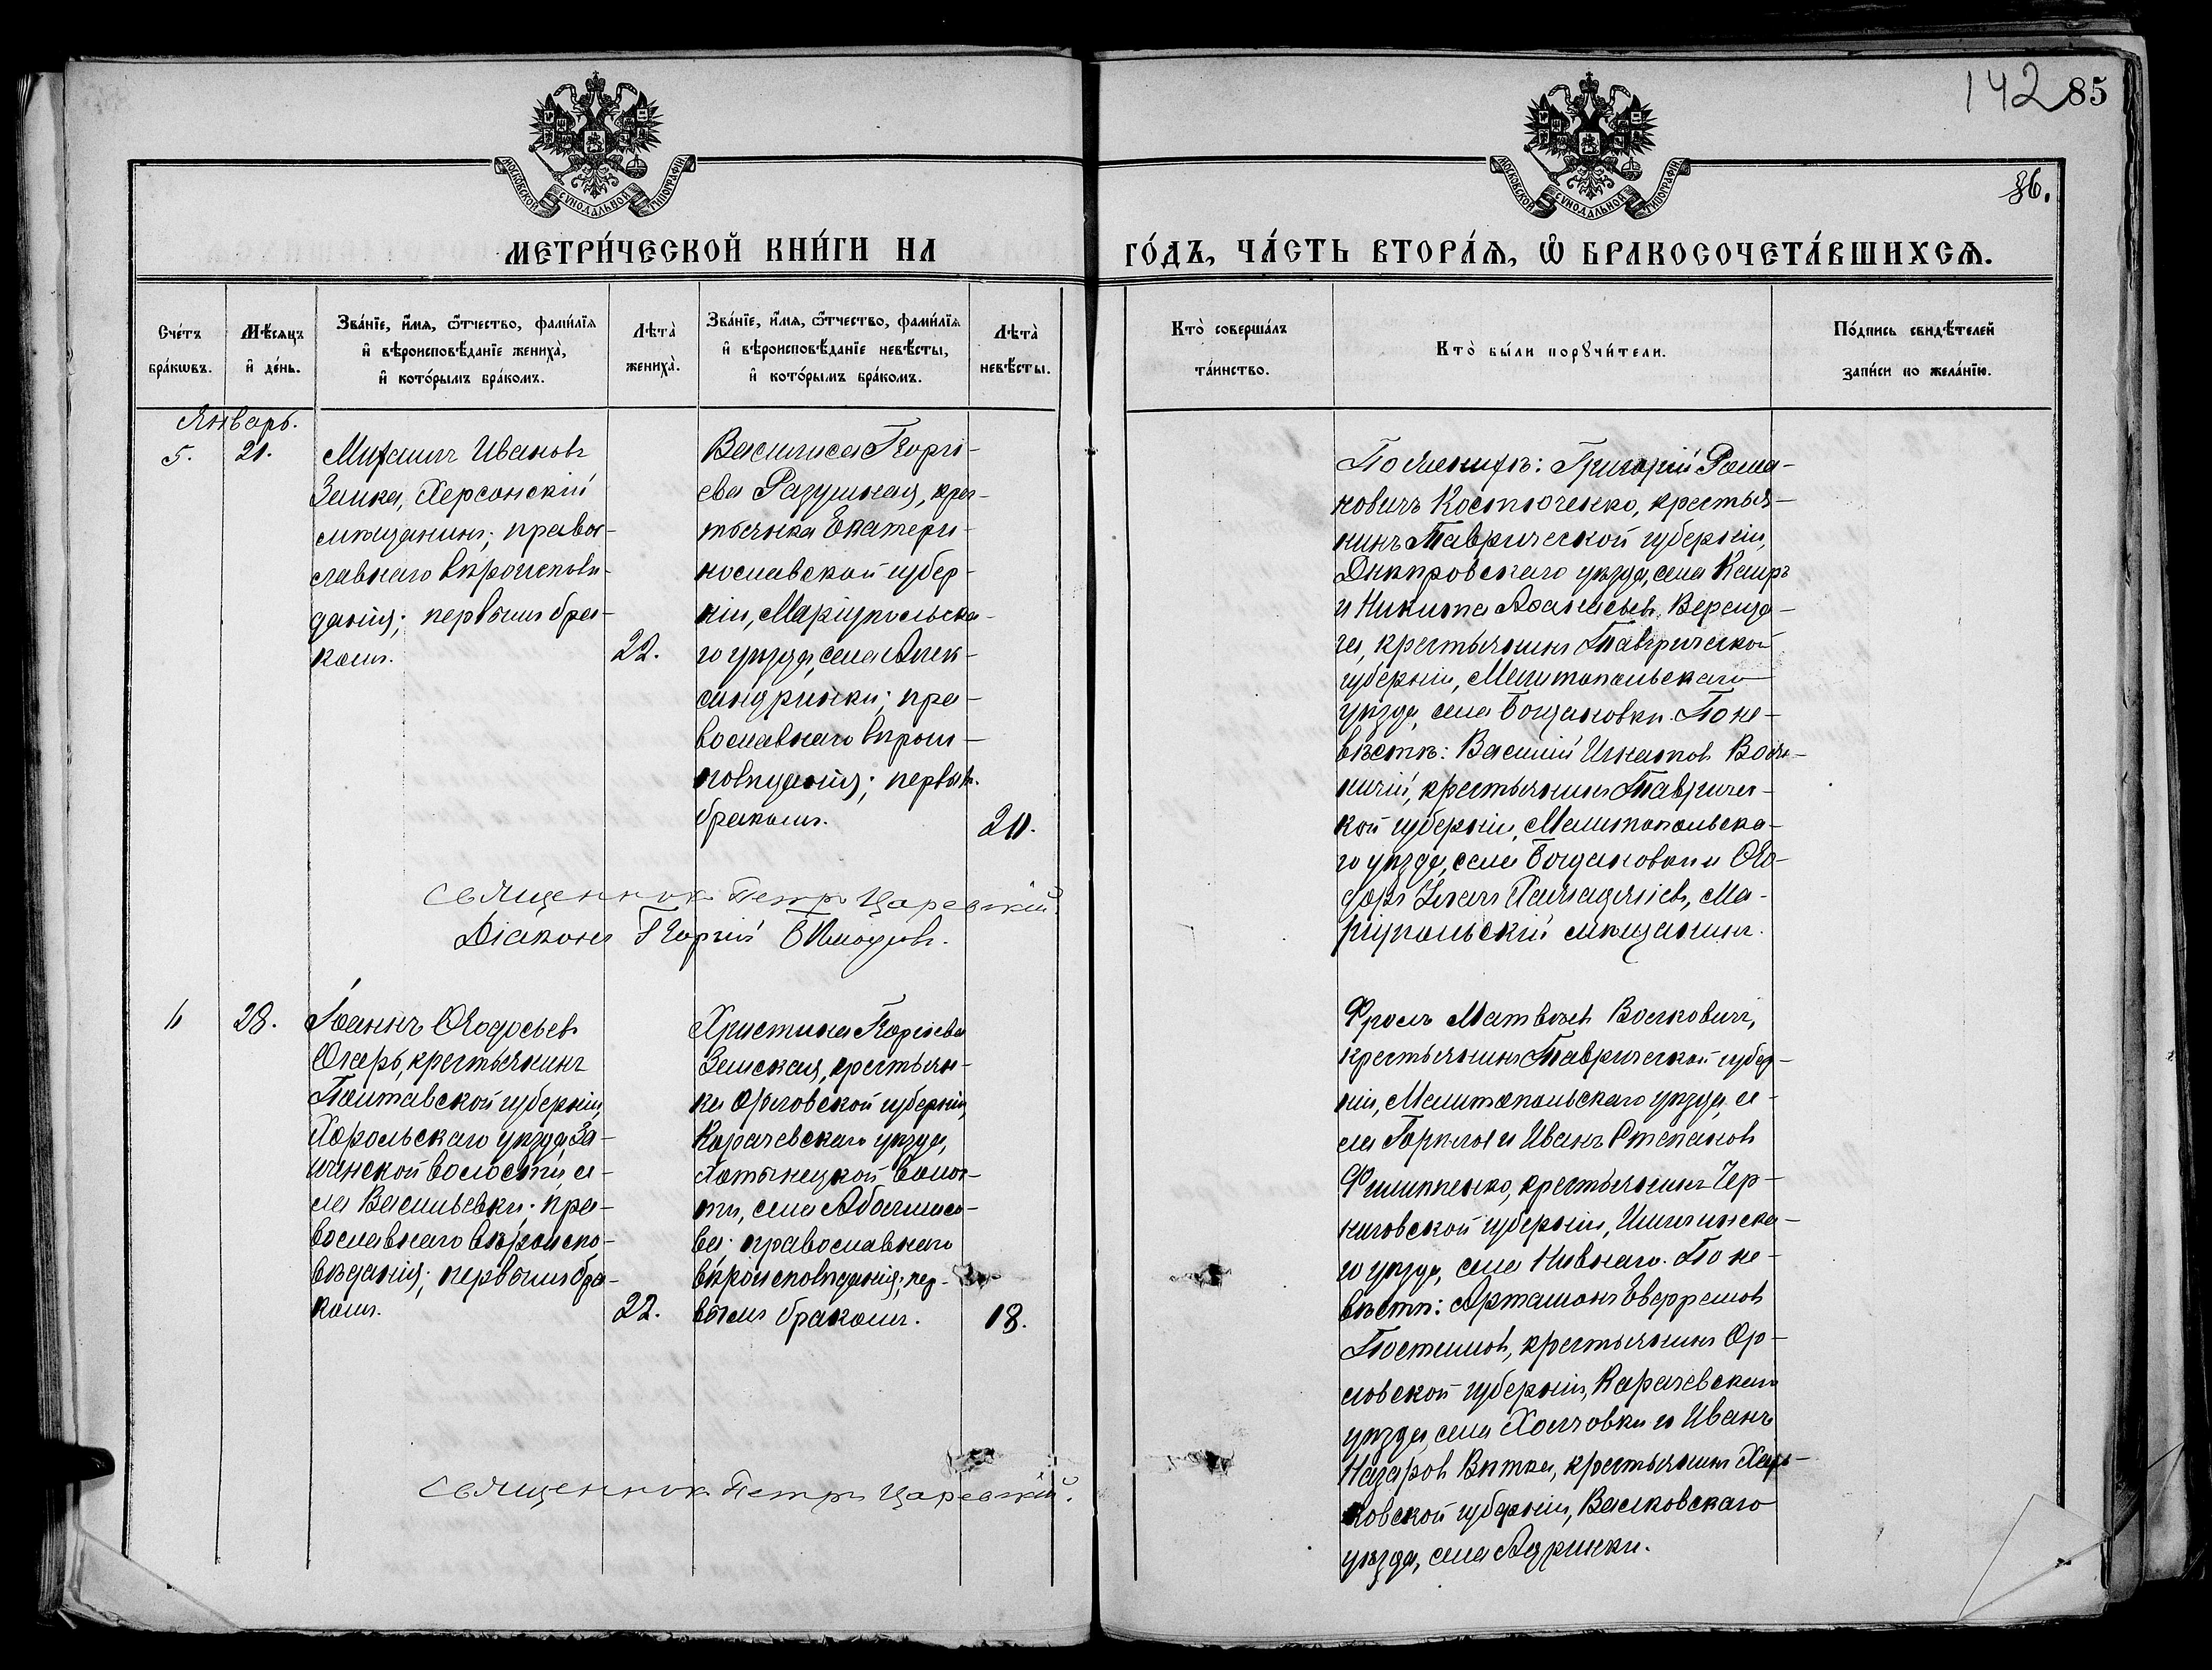 142 85
86.
МОСКОВСКОЙ СѴНОДАЛЬНОЙ ТИПОГРАФІИ
МОСКОВСКОЙ СѴНОДАЛЬНОЙ ТИПОГРАФІИ
МЕТРИ́ЧЕСКОЙ КНИ́ГИ НА ГО́ДЪ, ЧА́СТЬ ВТОРА́Ѧ, Ѽ БРАКОСОЧЕТА́ВШИХСѦ.
Сче́тъ
бра́кѡвъ.
Мѣ́сяцъ
и҆ де́нь.
Зва́нїе, и҆́мѧ, ѻ҆́тчество, фами́лїѧ
и҆ вѣроисповѣ́данїе жениха̀,
и҆ кото́рымъ бра́комъ.
Лѣта̀
жениха̀.
Зва́нїе, и҆́мѧ, ѻ҆́тчество, фами́лїѧ
и҆ вѣроисповѣ́данїе невѣ́сты,
и҆ кото́рымъ бра́комъ.
Лѣта̀
невѣ́сты.
Кто̀ соверша́лъ
та́инство.
Кто̀ бы́ли порꙋчи́тели.
По́дпись свидѣ́телей
за́писи по жела́нїю.
Январь.
5.
21.
Михаилъ Ивановъ
Заика, Херсонскій
мѣщанинъ; право-
славнаго вѣроисповѣ-
данія; первымъ бра-
комъ.
22.
Василиса Георгі-
ева Разумная, крес-
тьянка Екатери-
нославской губер-
ніи, Маріупольска-
го уѣзда, села Алек-
сандринки; пра-
вославнаго вѣроис-
повѣданія; первымъ
бракомъ.
20.
Священникъ Петръ Царевскій.
Діаконъ Георгій
По женихѣ: Григорій Рома-
новичъ Костюченко, крестья-
нинъ Таврической губерніи,
Днѣпровскаго уѣзда, села Каиръ
и Никита Аѳанасьевъ
га, крестьянинъ Таврической
губерніи, Мелитопольскаго
уѣзда, села Богдановки. По не-
вѣстѣ: Василій Игнатовъ
крестьянинъ Тавричес-
кой губерніи, Мелитопольска-
го уѣзда, села Богдановки и Ѳео-
доръ Ма-
ріупольскій мѣщанинъ.
6
28.
Іоаннъ Ѳеодосьевъ
Огарь, крестьянинъ
Полтавской губерніи,
Хорольскаго уѣзда, За-
ичинской волости, се-
ла Васильевки; пра-
вославнаго вѣроиспо-
вѣданія; первымъ бра-
комъ.
22.
Христина Георгіева
Земская, крестьян-
ка Орловской губерніи,
Карачевскаго уѣзда,
Хотынецкой волос-
ти, села Абалмасо-
ва; православнаго
вѣроисповѣданія; пер-
вымъ бракомъ.
18.
Священникъ Петръ Царевскій.
Фролъ Матвѣевъ Волковичъ,
крестьянинъ Таврической губер-
ніи, Мелитопольскаго уѣзда, се-
ла Горѣлое и Иванъ Степановъ
Филиппенко, крестьянинъ Чер-
ниговской губерніи,
го уѣзда, села Ивнаго. По не-
вѣстѣ: Артамонъ Евфремовъ
крестьянинъ Ор-
ловской губерніи, Карачевскаго
уѣзда, села Холчовки и Иванъ
Назаровъ Витка, крестьянинъ Харь-
ковской губерніи, Валковскаго
уѣзда, села Адринки.